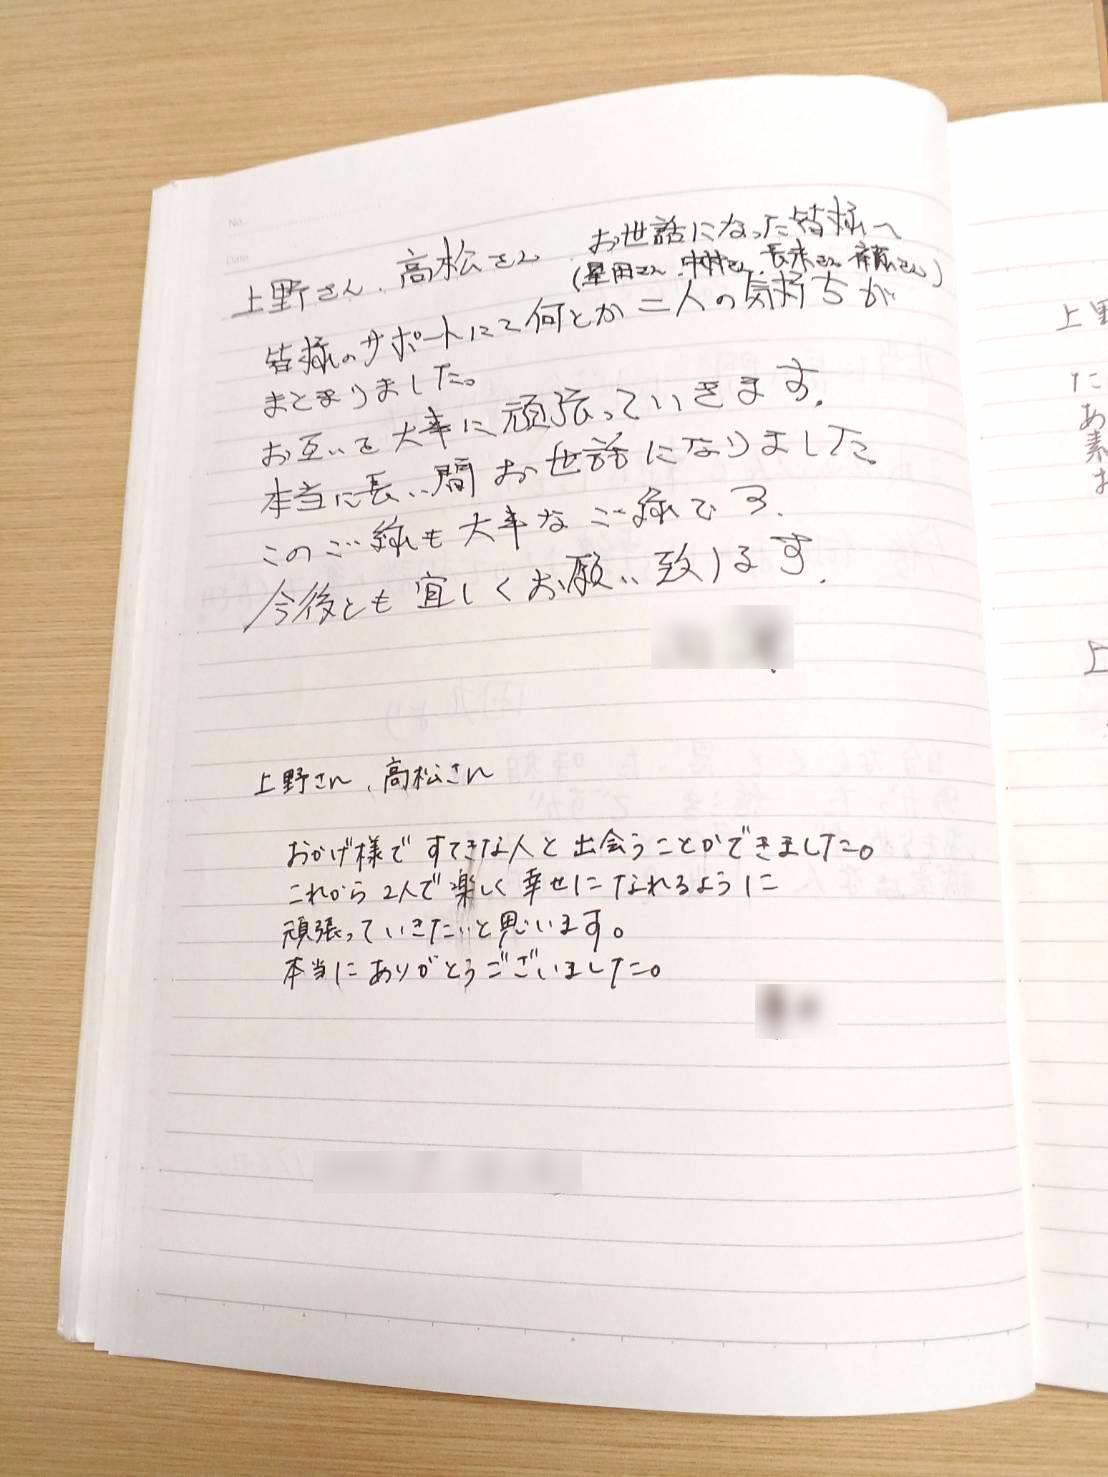 No.
Date
上野さん、高松さん お世話になった皆様へ
(星田さん、中村さん、長末さん、斉藤さん)
皆様のサポートにて何とか二人の気持ちが
まとまりました。
お互いを大事に頑張っていきます。
本当に長い間お世話になりました
このご縁も大事なご縁です。
今後とも宜しくお願い致します。
上野さん、高松さん
おかげ様ですてきな人と出会うことができました。
これから2人で楽しく幸せになれるように
頑張っていきたいと思います。
本当にありがとうございました。
上野
た
あ
素
お
上